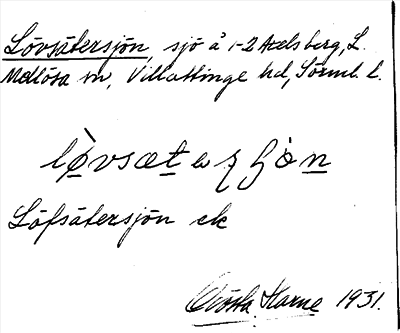 Lövsätersjön, sjö å 1-2 Axelsberg, L.
Mellösa sn, Villåttinge hd, Sörml. l.
Löfsätersjön ek
Gösta Karne 1931.